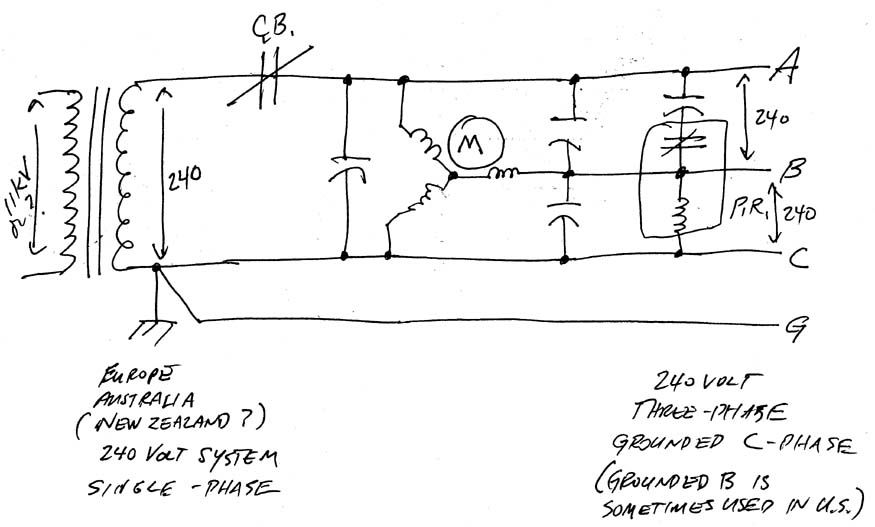 C.B.
A
240
B
240
C
G
240
11KV
?
M
P.R.
EUROPE
AUSTRALIA
(NEW ZEALAND ?)
240 VOLT SYSTEM
SINGLE-PHASE
240 VOLT
THREE-PHASE
GROUNDED C-PHASE
(GROUNDED B IS
SOMETIMES USED IN U.S.)